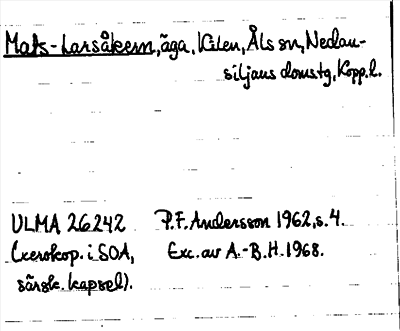 Mats-Larsåkern, äga, Kilen, Åls sn, Nedan-
siljans domstg, Kopp.l.
ULMA 26242 P.F. Andersson 1962, s. 4.
(xerokop. i SOA, Exc. av A.-B.H. 1968.
särsk. kapsel).